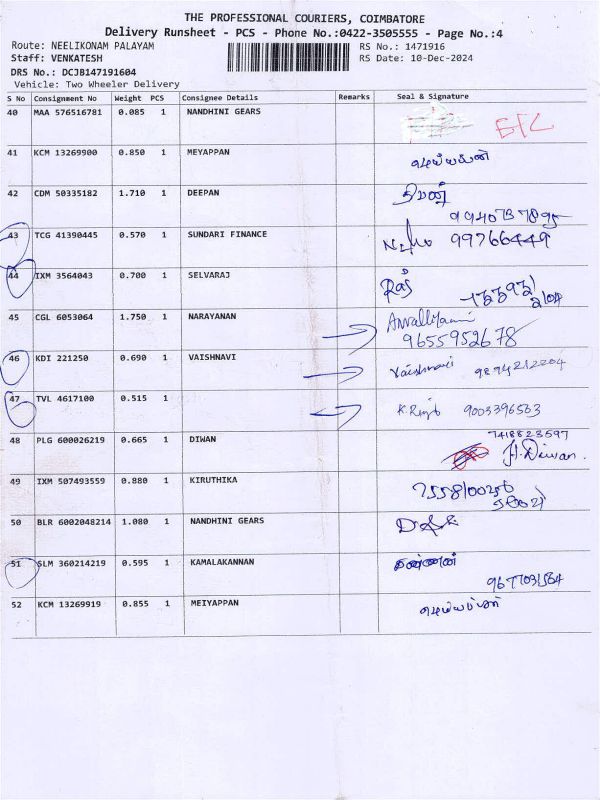 THE PROFESSIONAL COURIERS, COIMBATORE
Delivery Runsheet - PCS - Phone No.:0422-3505555 - Page No.:4
Route: NEELIKONAM PALAYAM RS No.: 1471916
Staff: VENKATESH RS Date: 10-Dec-2024
DRS No.: DCJB147191604
Vehicle: Two Wheeler Delivery
S No Consignment No Weight PCS Consignee Details Remarks Seal & Signature
40 MAA 576516781 0.085 1 NANDHINI GEARS
41 KCM 13269900 0.850 1 MEYAPPAN
42 CDM 50335182 1.710 1 DEEPAN
43 TCG 41390445 0.570 1 SUNDARI FINANCE 99766449
44 IXM 3564043 0.700 1 SELVARAJ
45 CGL 6053064 1.750 1 NARAYANAN
9655952678
46 KDI 221250 0.690 1 VAISHNAVI Vaishnavi 9894212204
47 TVL 4617100 0.515 1 9003396563
48 PLG 600026219 0.665 1 DIWAN 7418823597
H.Diwan.
49 IXM 507493559 0.880 1 KIRUTHIKA
50 BLR 6002048214 1.080 1 NANDHINI GEARS
51 SLM 360214219 0.595 1 KAMALAKANNAN கண்ணன்
52 KCM 13269919 0.855 1 MEIYAPPAN